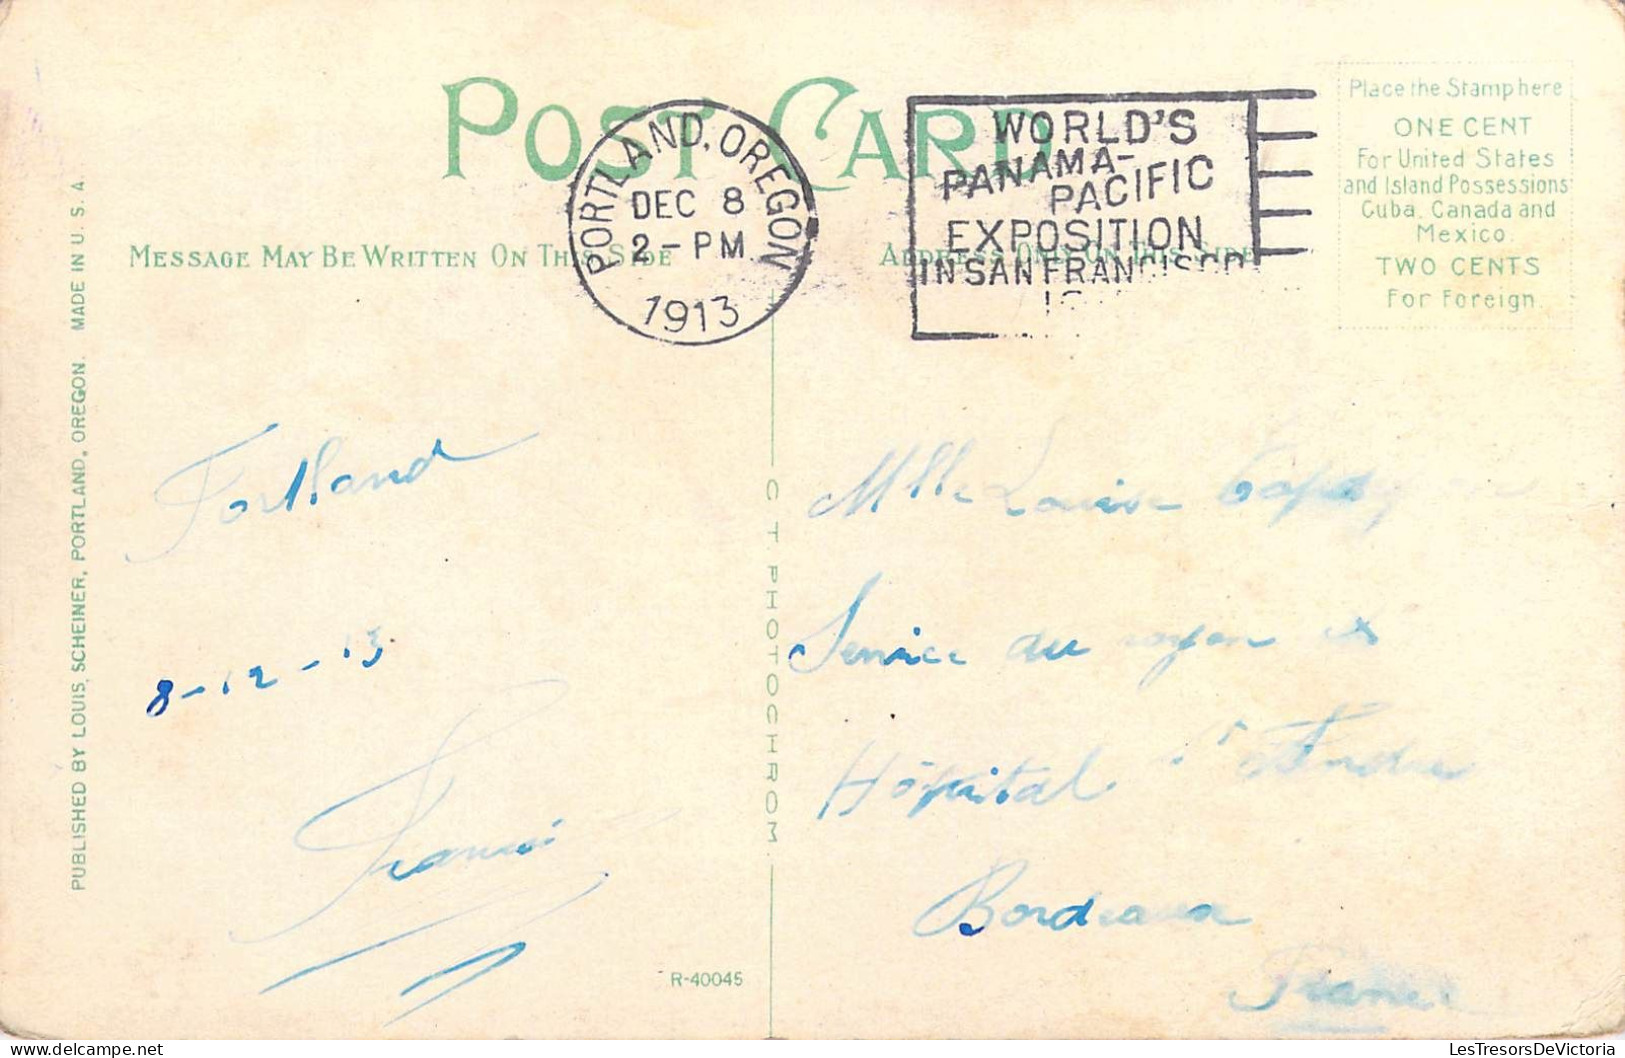 POST CARD
PORTLAND, OREGON
DEC 8
2-PM
1913
WORLD'S
PANAMA-
PACIFIC
EXPOSITION
IN SAN FRANCISCO
Place the Stamp here
ONE CENT
For United States
and Island Possessions
Cuba, Canada and
Mexico.
TWO CENTS
For Foreign.
MESSAGE MAY BE WRITTEN ON THIS SIDE
ADDRESS ONLY ON THIS SIDE
PUBLISHED BY LOUIS SCHEINER, PORTLAND, OREGON. MADE IN U. S. A.
Portland
8-12-13
Francis
C. T. PHOTOCHROM
R-40045
Mlle Louise
Service du rayon X
Hôpital St André
Bordeaux
France
LesTresorsDeVictoria